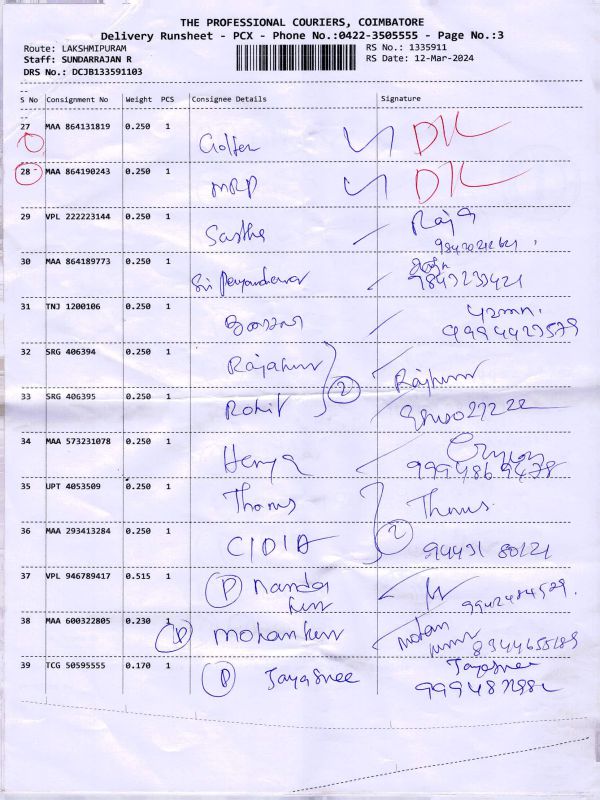 THE PROFESSIONAL COURIERS, COIMBATORE
Delivery Runsheet - PCX - Phone No.:0422-3505555 - Page No.:3
Route: LAKSHMIPURAM RS No.: 1335911
Staff: SUNDARRAJAN R RS Date: 12-Mar-2024
DRS No.: DCJB133591103
S No Consignment No Weight PCS Consignee Details Signature
27 MAA 864131819 0.250 1
DIL
28 MAA 864190243 0.250 1 MRP DIL
29 VPL 222223144 0.250 1 Sastha Raja
30 MAA 864189773 0.250 1 Sri
9843233421
31 TNJ 1200106 0.250 1
32 SRG 406394 0.250 1 Rajakumr
2 Rajkumr
33 SRG 406395 0.250 1 Rohit
34 MAA 573231078 0.250 1
35 UPT 4053509 0.250 1 Thomus Thomus
2
36 MAA 293413284 0.250 1 CIDIA 94431 80121
37 VPL 946789417 0.515 1 P Nanda
kum
38 MAA 600322805 0.230 1 P mohankum mohan
kumr
39 TCG 50595555 0.170 1 P Jayasree Jayasree